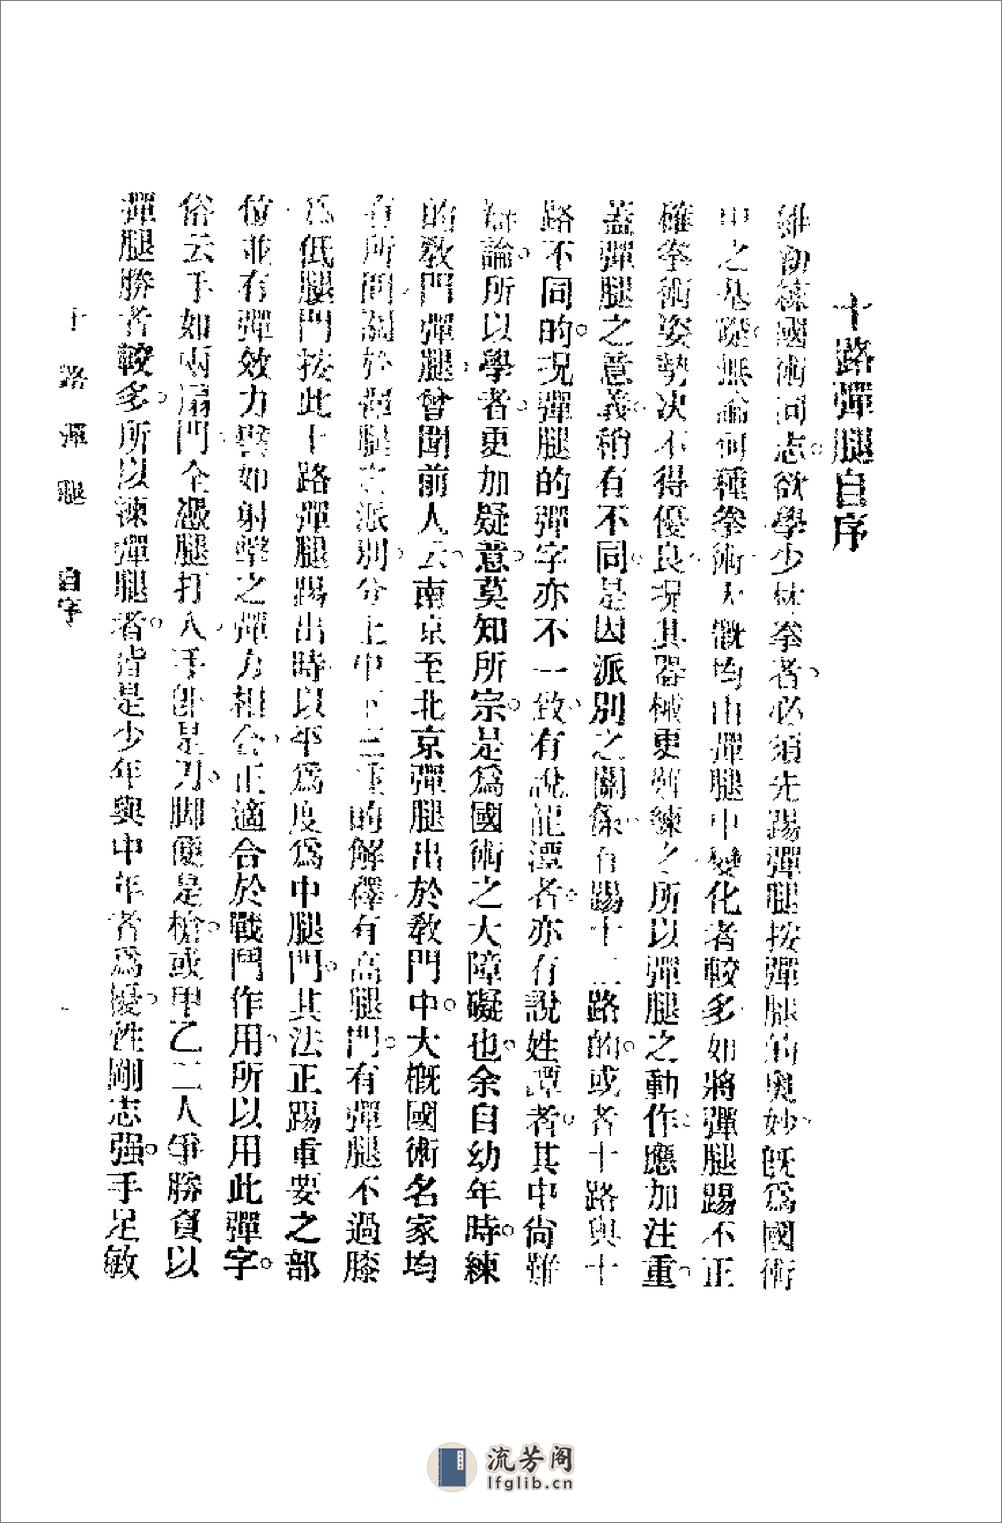 十路彈腿自序
維初練國術同志。欲學少林拳者。必須先踢彈腿按彈腿的奧妙。旣爲國術
中之基礎。無論何種拳術。大概均由彈腿中變化者較多。如將彈腿踢不正
確。拳術姿勢決不得優良。况其器械更難練之。所以彈腿之動作。應加注重。
蓋彈腿之意義。稍有不同。是因派別之關係。有踢十二路的。或者十路與十
路不同的。况彈腿的彈字亦不一致。有說龍潭者。亦有說姓譚者。其中尙難
辯論。所以學者。更加疑意。莫知所宗。是爲國術之大障礙也。余自幼年時。練
的敎門彈腿。曾聞前人云。南京至北京。彈腿出於敎門中。大概國術名家均
有所聞。關於彈腿之派別。分上中下三逕的解釋。有高腿門。有彈腿不過膝
爲低腿門。按此十路彈腿踢出時。以平爲度。爲中腿門。其法正踢重要之部
位。並有彈效力。譬如射擊之彈力相合。正適合於戰鬥作用。所以用此彈字。
俗云手如兩扇門。全憑腿打人。手卽是刀。脚便是槍。或甲乙二人爭勝負。以
彈腿勝者較多。所以練彈腿者。皆是少年與中年者爲優。性剛志强。手足敏
十路彈腿 自序
流芳阁
lfglib.cn